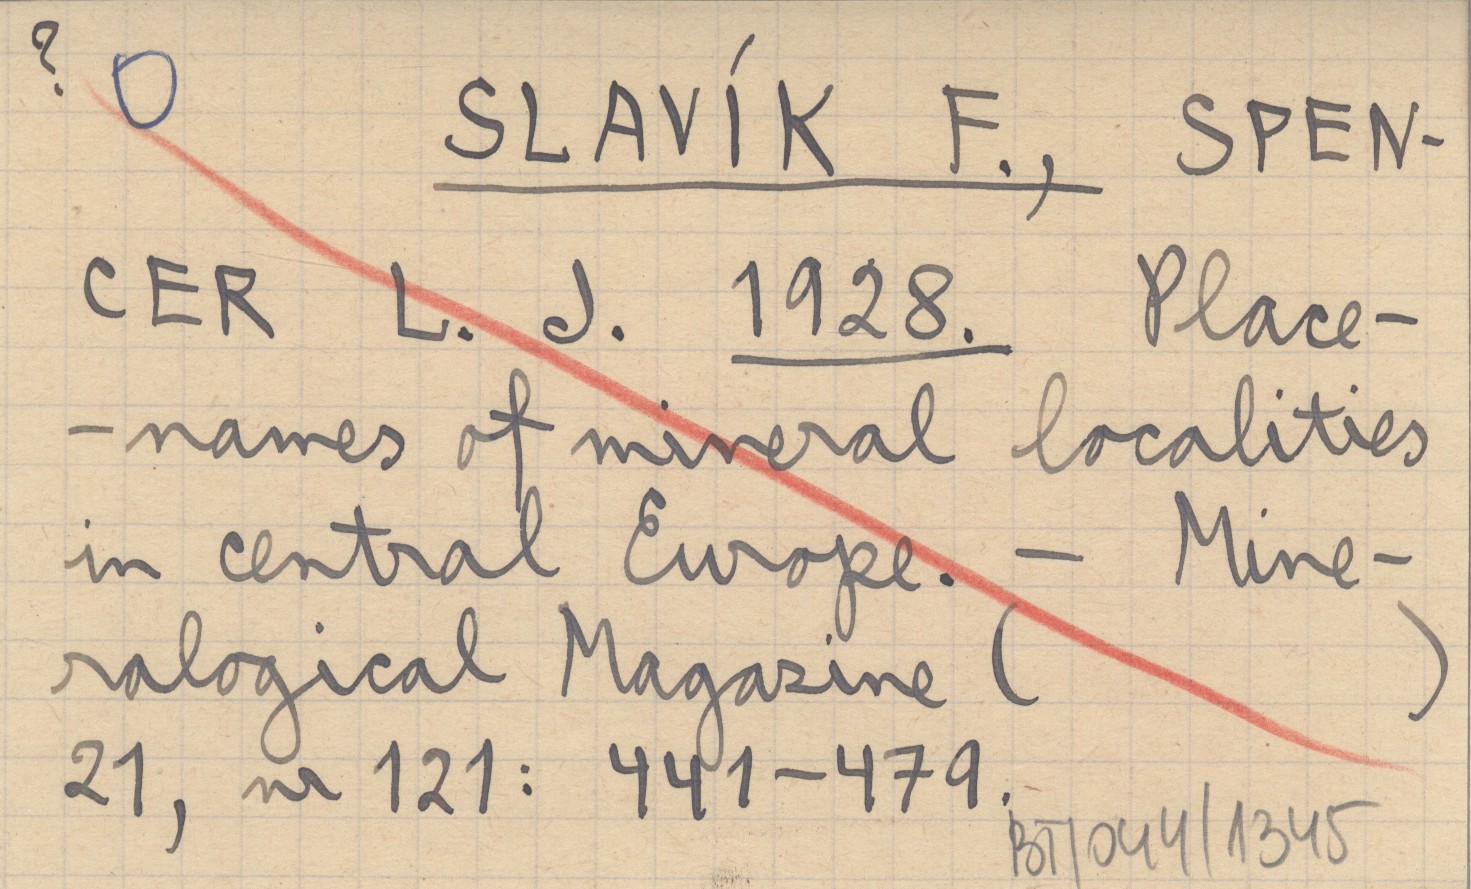 ? O
SLAVÍK F., SPEN-
CER L. J. 1928. Place-
-names of mineral localities
in central Europe. — Mine-
ralogical Magazine ( )
21, nr 121: 441–479.
BT/044/1345